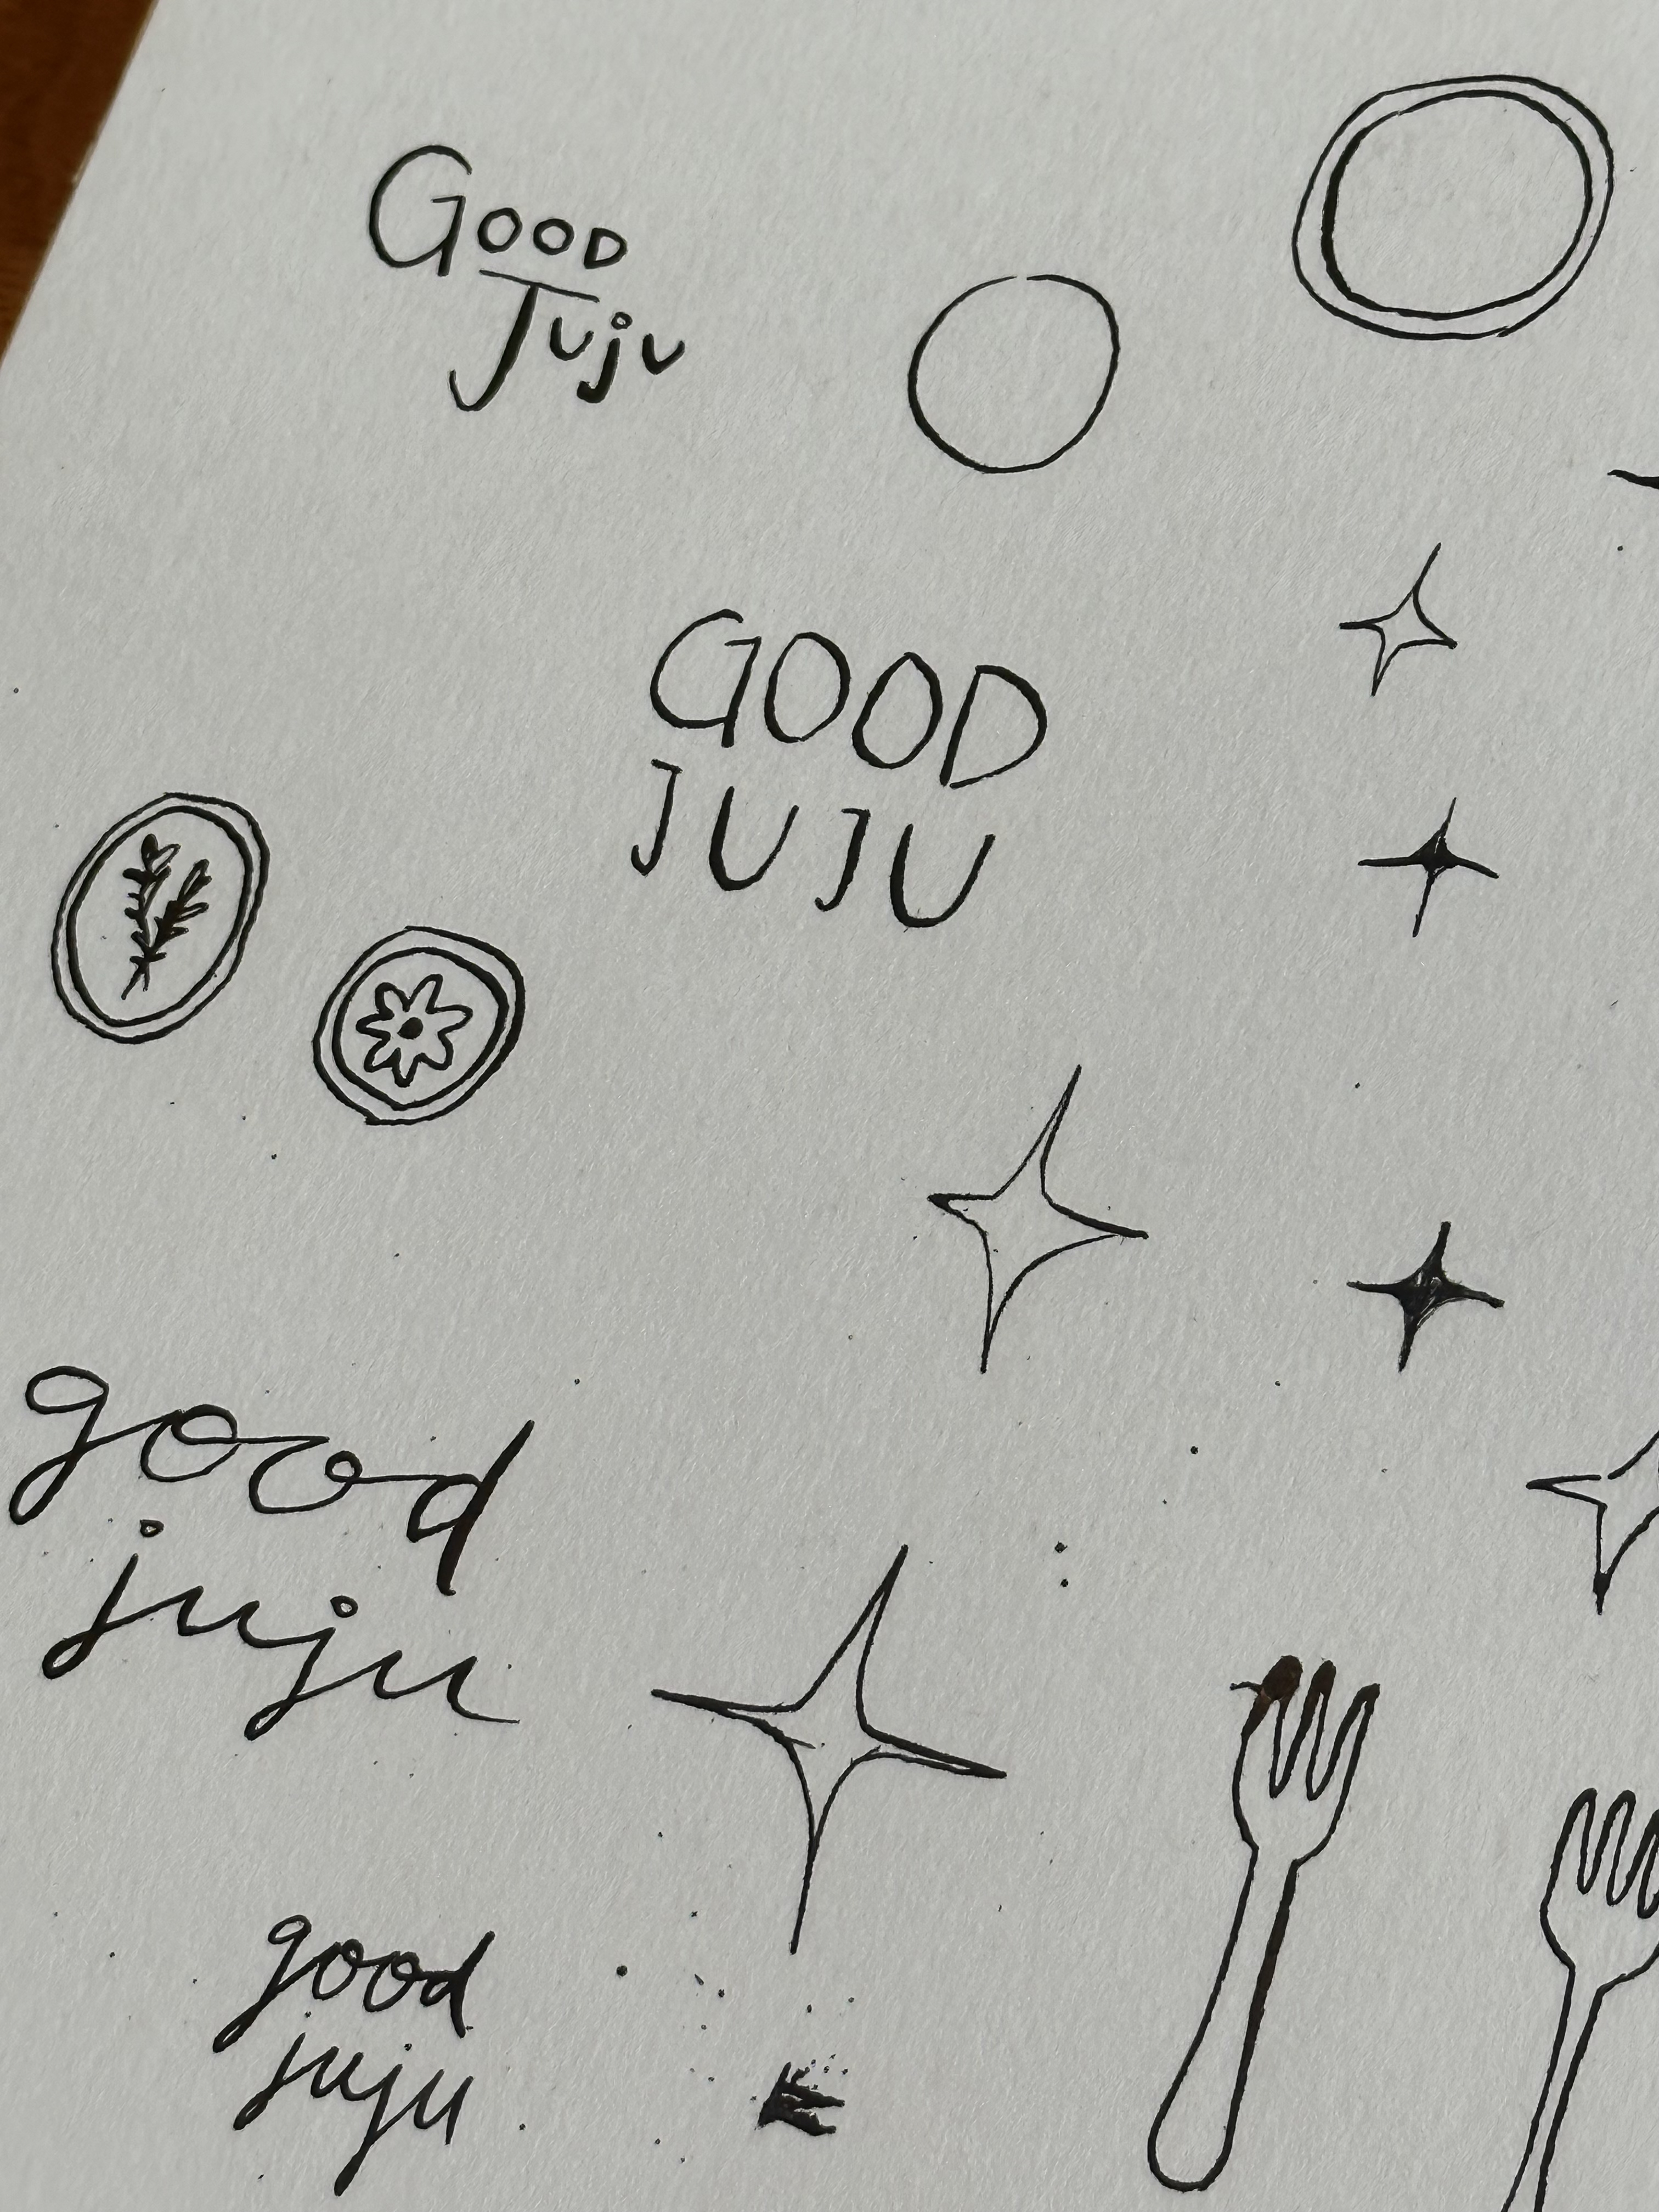 GOOD
Juju
GOOD
JUJU
good
juju
good
juju